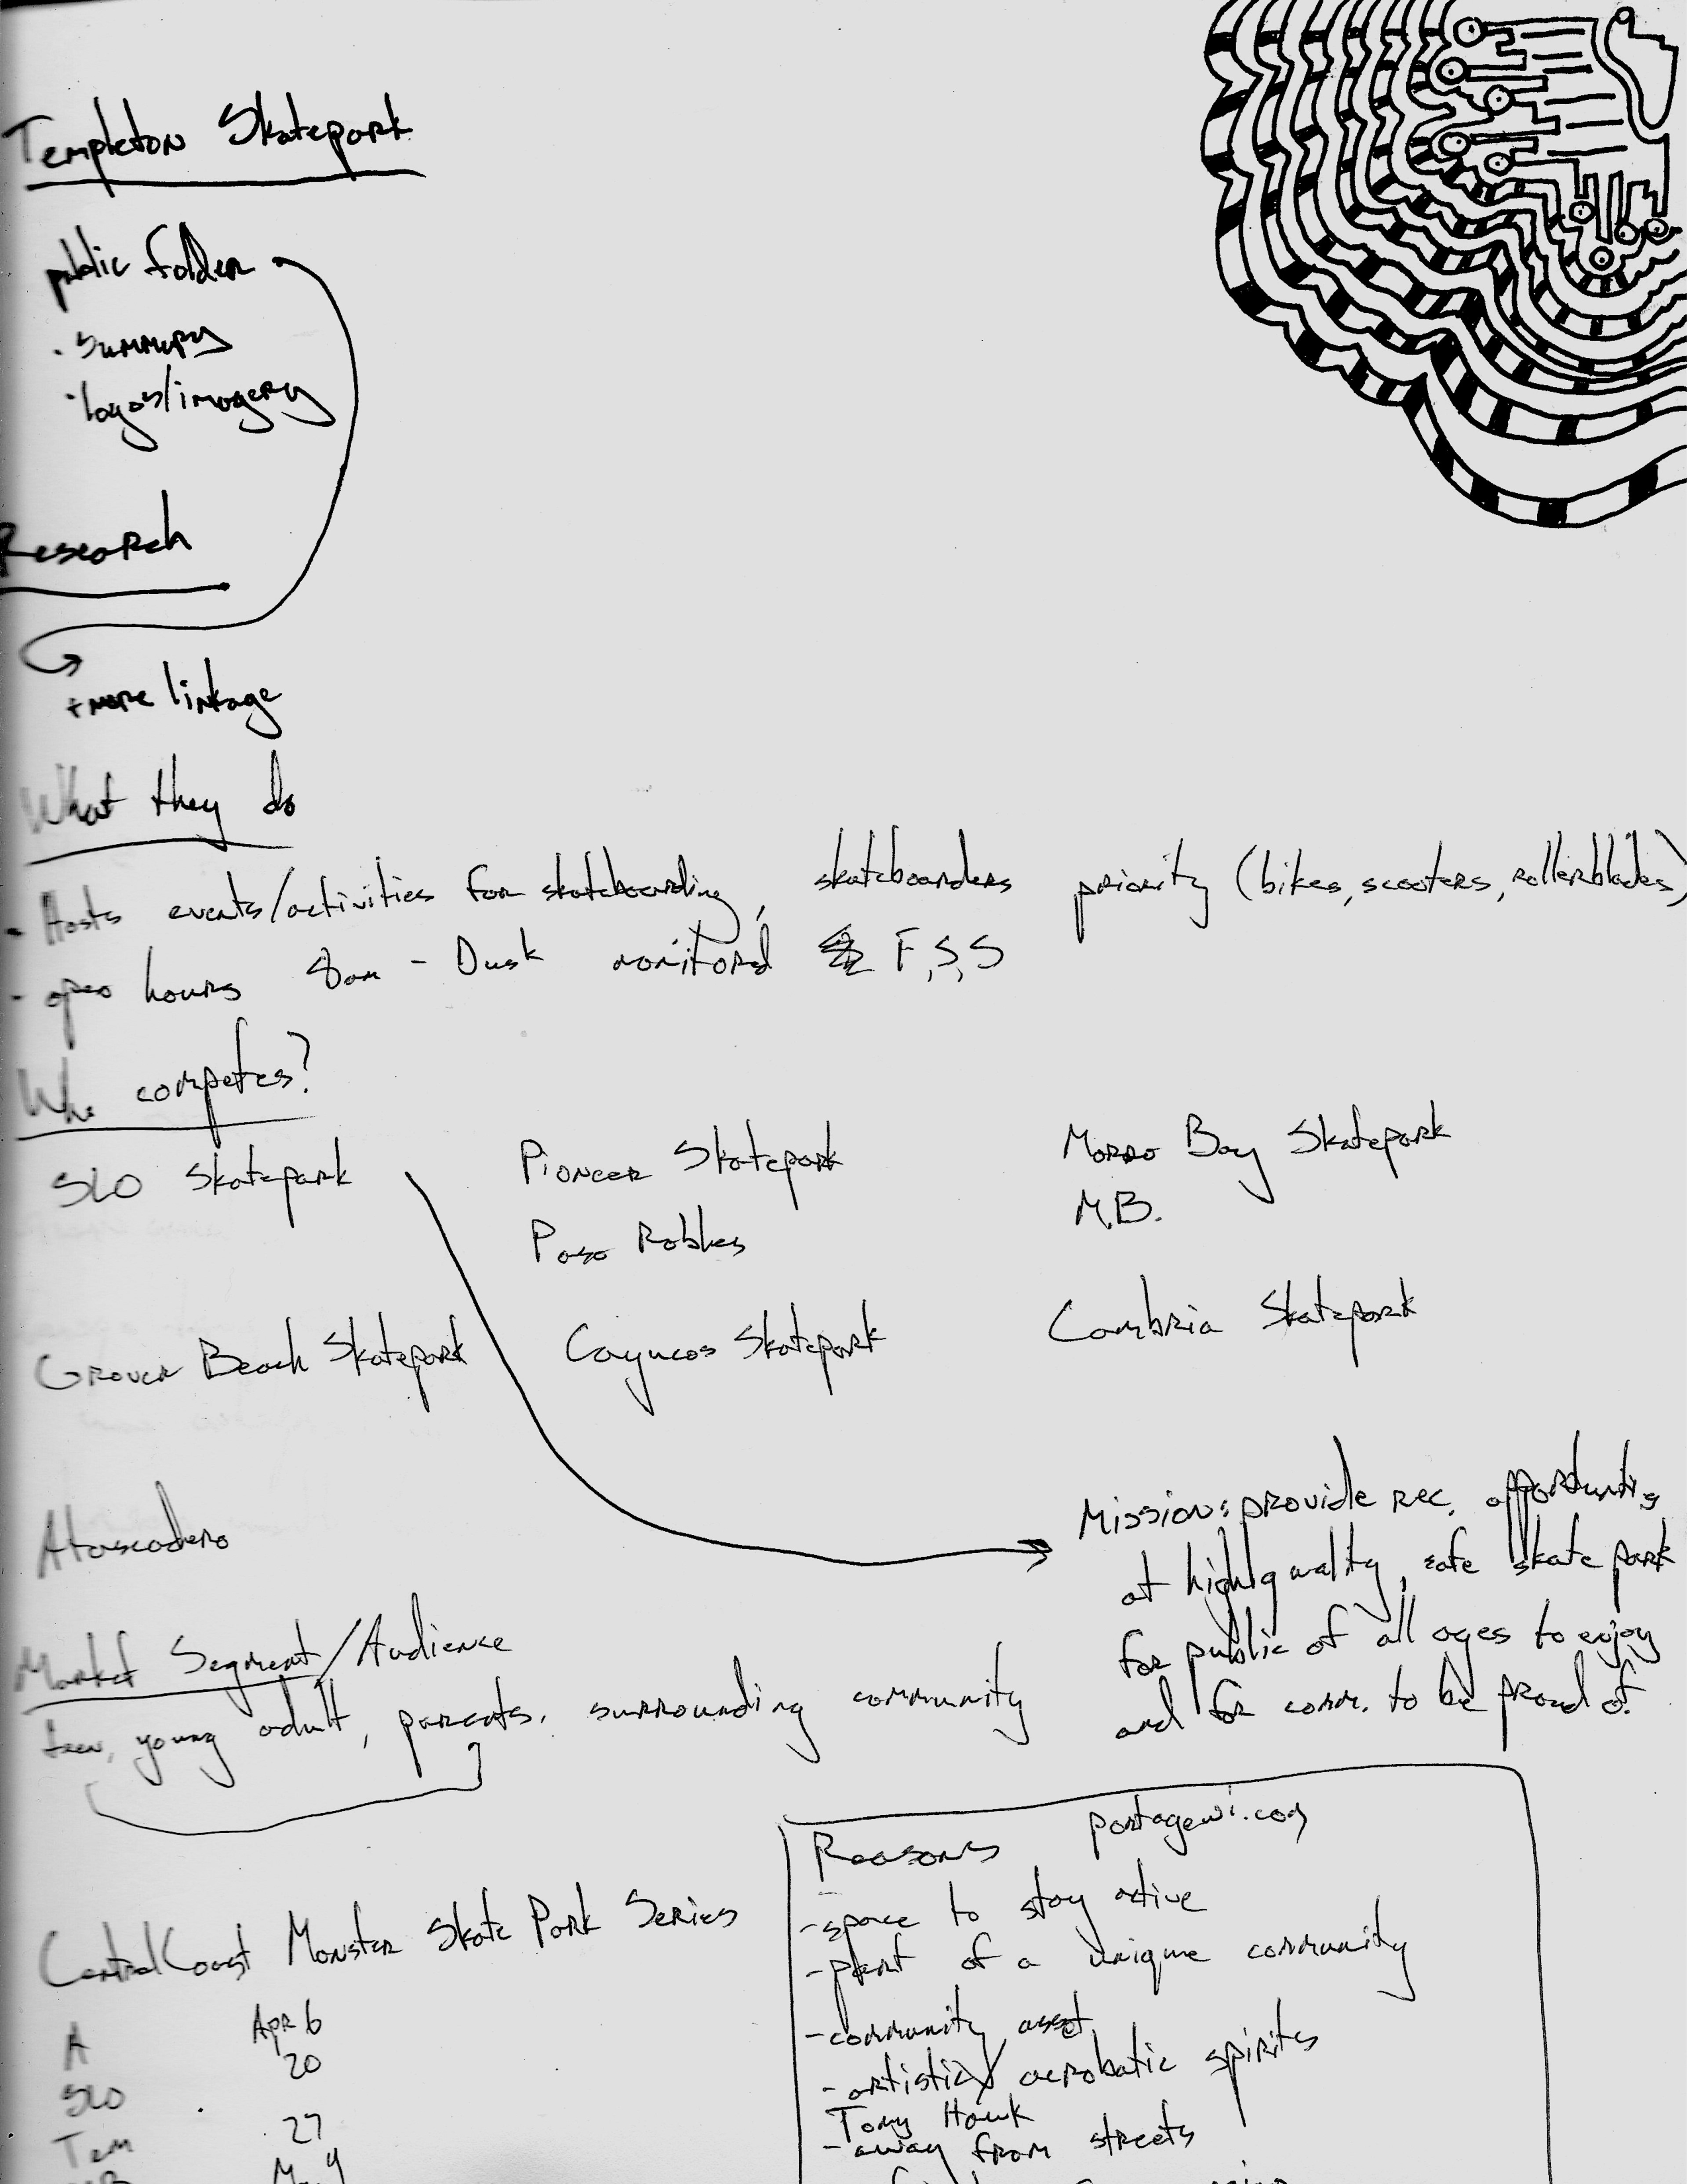 Templeton Skatepark
public folder
· Summary
· logos/imagery
Research
+ more linkage
What they do
- Hosts events/activities for skateboarding, skateboarders priority (bikes, scooters, rollerblades)
- open hours 8am - Dusk monitored F, S, S
Who competes?
SLO Skatepark Pioneer Skatepark Morro Bay Skatepark
Paso Robles M.B.
Grover Beach Skatepark Cayucos Skatepark Cambria Skatepark
Atascadero
Mission: provide rec. opportunities
at high quality, safe skate park
for public of all ages to enjoy
and for comm. to be proud of.
Market Segment/Audience
teen, young adult, parents, surrounding community
Central Coast Monster Skate Park Series
A Apr 6
SLO 20
Tem 27
May
Reasons portagewi.com
- space to stay active
- part of a unique community
- community asset
- artistic/acrobatic spirits
Tony Hawk
- away from streets